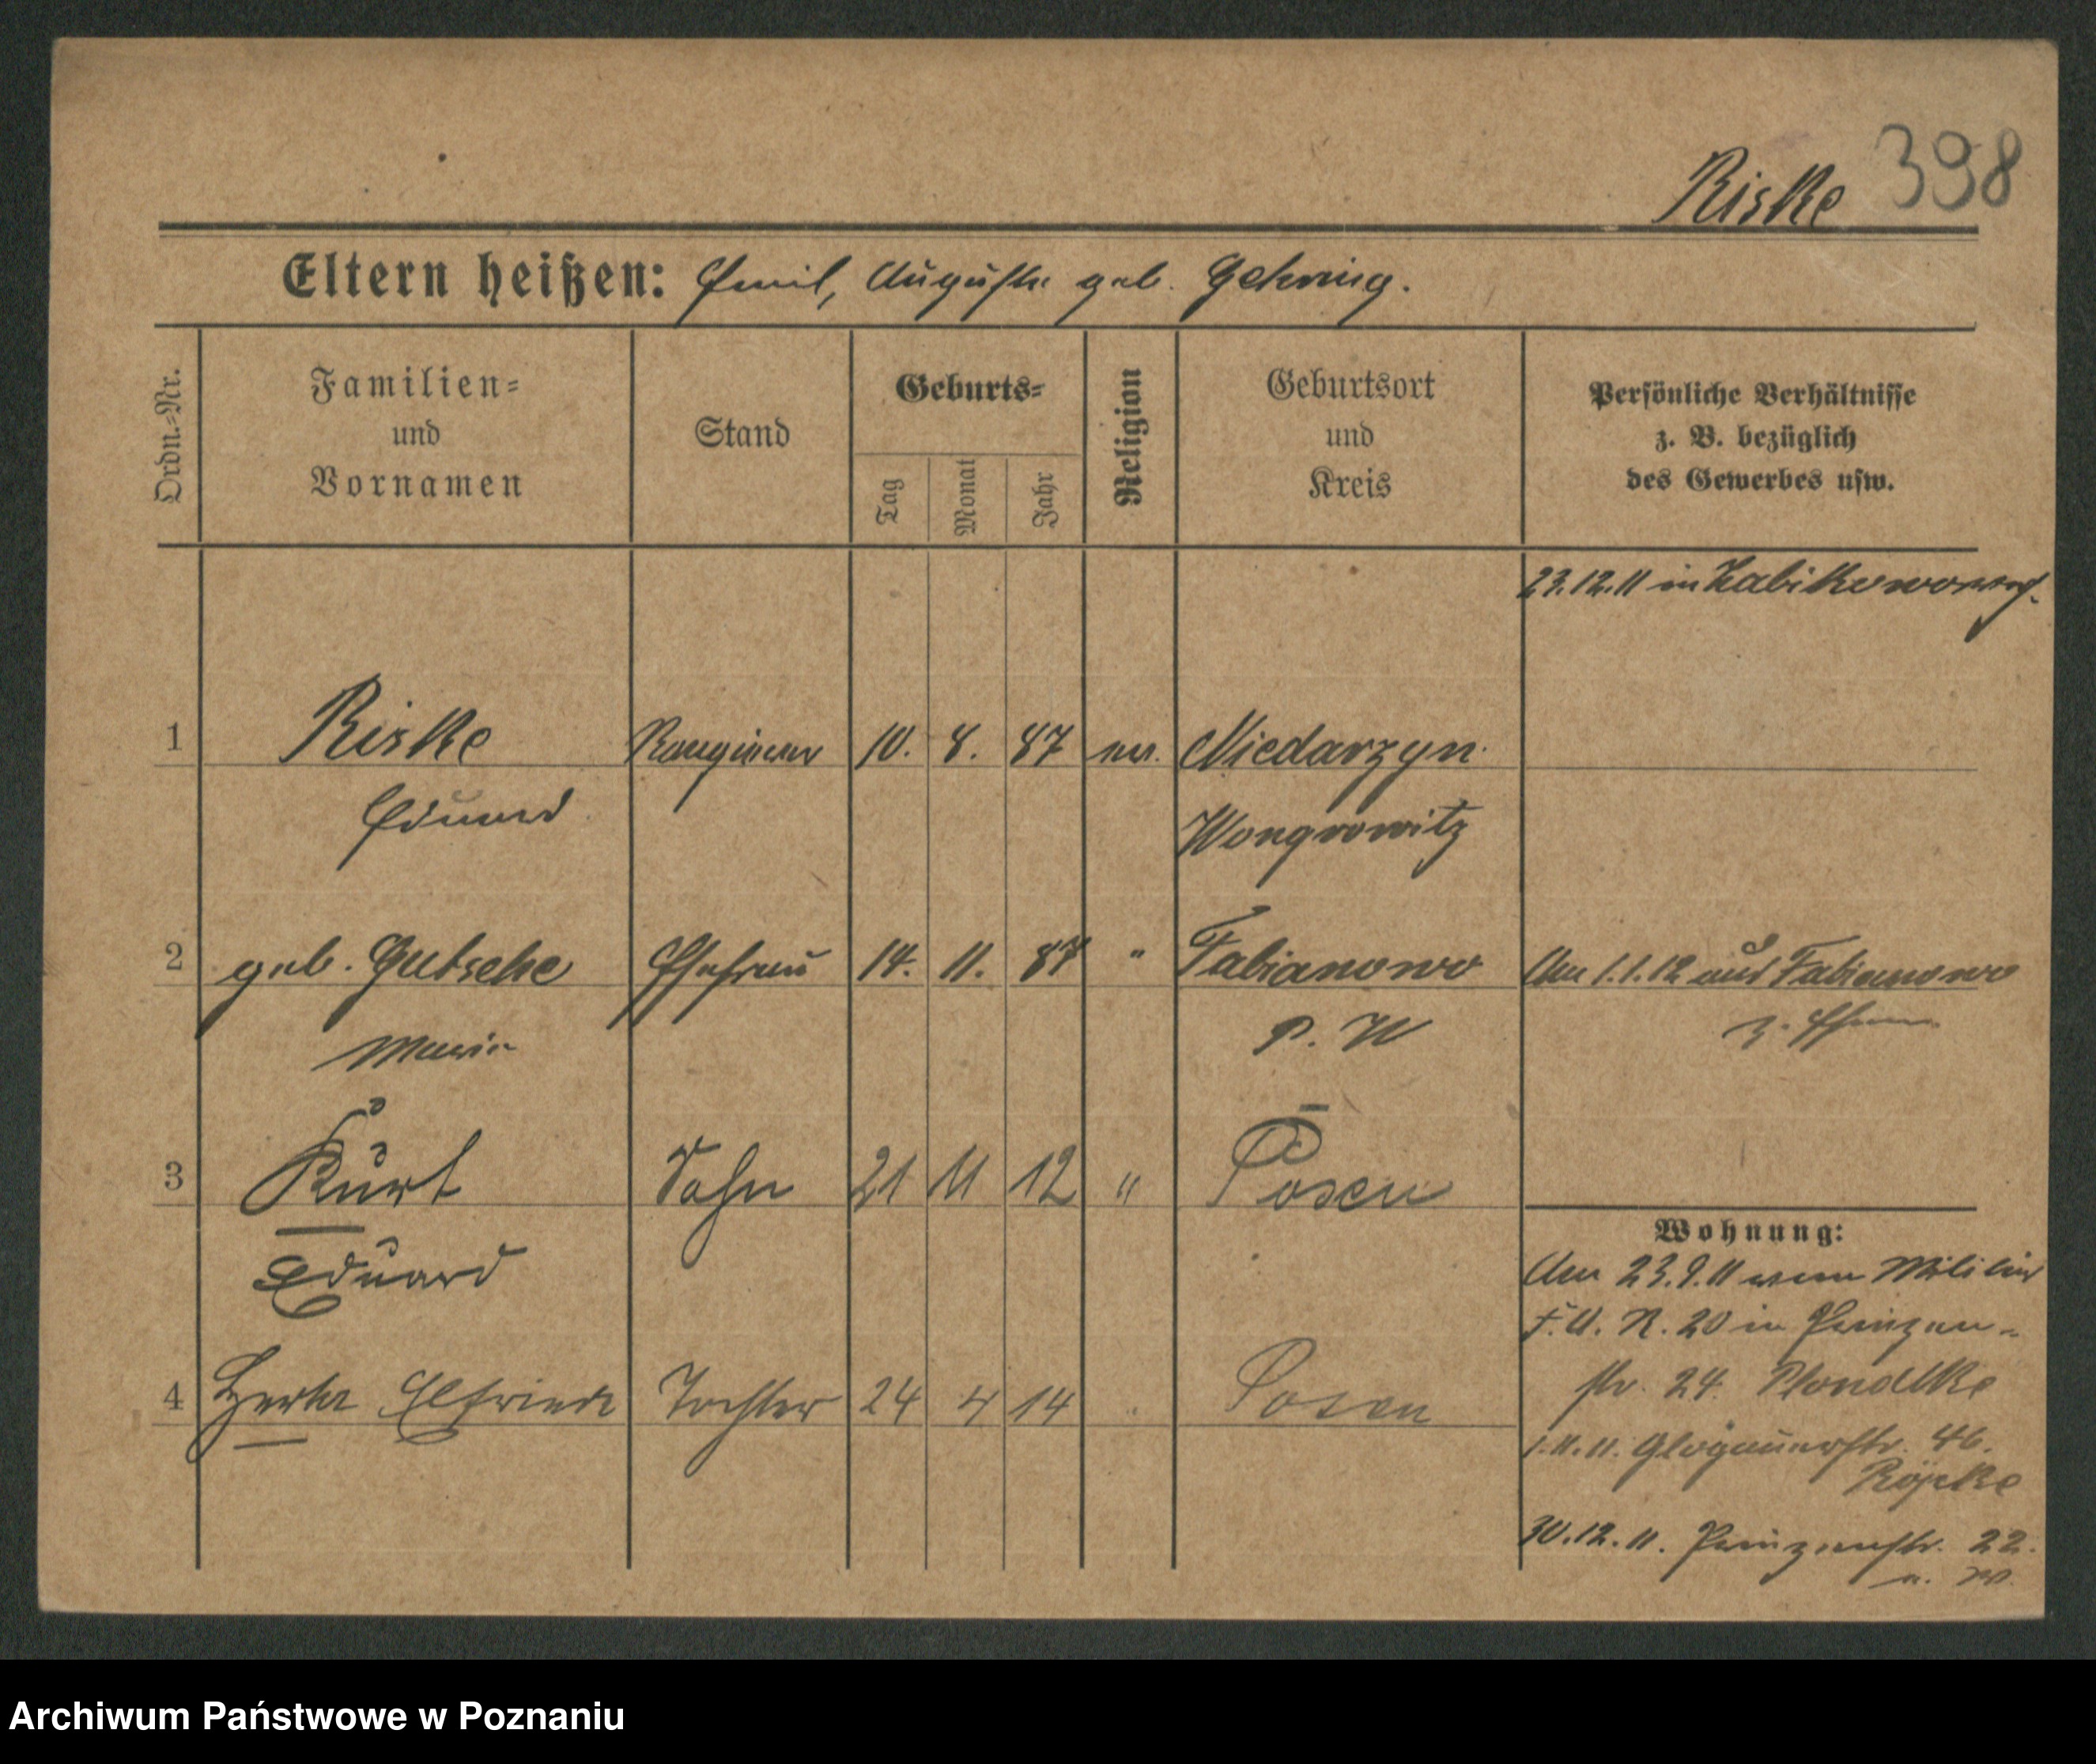 Riske 398
Eltern heißen: Emil, Auguste geb. Gehring.
Ordn.-Nr.
Familien-
und
Vornamen
Stand
Geburts-
Tag
Monat
Jahr
Religion
Geburtsort
und
Kreis
Persönliche Verhältnisse
z. B. bezüglich
des Gewerbes usw.
23.12.11 in Zabikowo
1 Riske Rangierer 10. 8. 87 ev. Niedarzyn
Eduard Wongrowitz
2 geb. Gutsche Ehefrau 14. 11. 87 " Fabianowo Am 1.1.12 aus Fabianowo
Marie P. W z. Ehem
3 Kurt Sohn 21 11 12 " Posen
Eduard
Wohnung:
Am 23.9.11 vom Militär
F. A. R. 20 in Prinzen-
str. 24.
4 Herta Elfriede Tochter 24 4 14 " Posen
1.11.11. Glogauerstr. 46.
Röpke
30.12.11. Prinzenstr. 22.